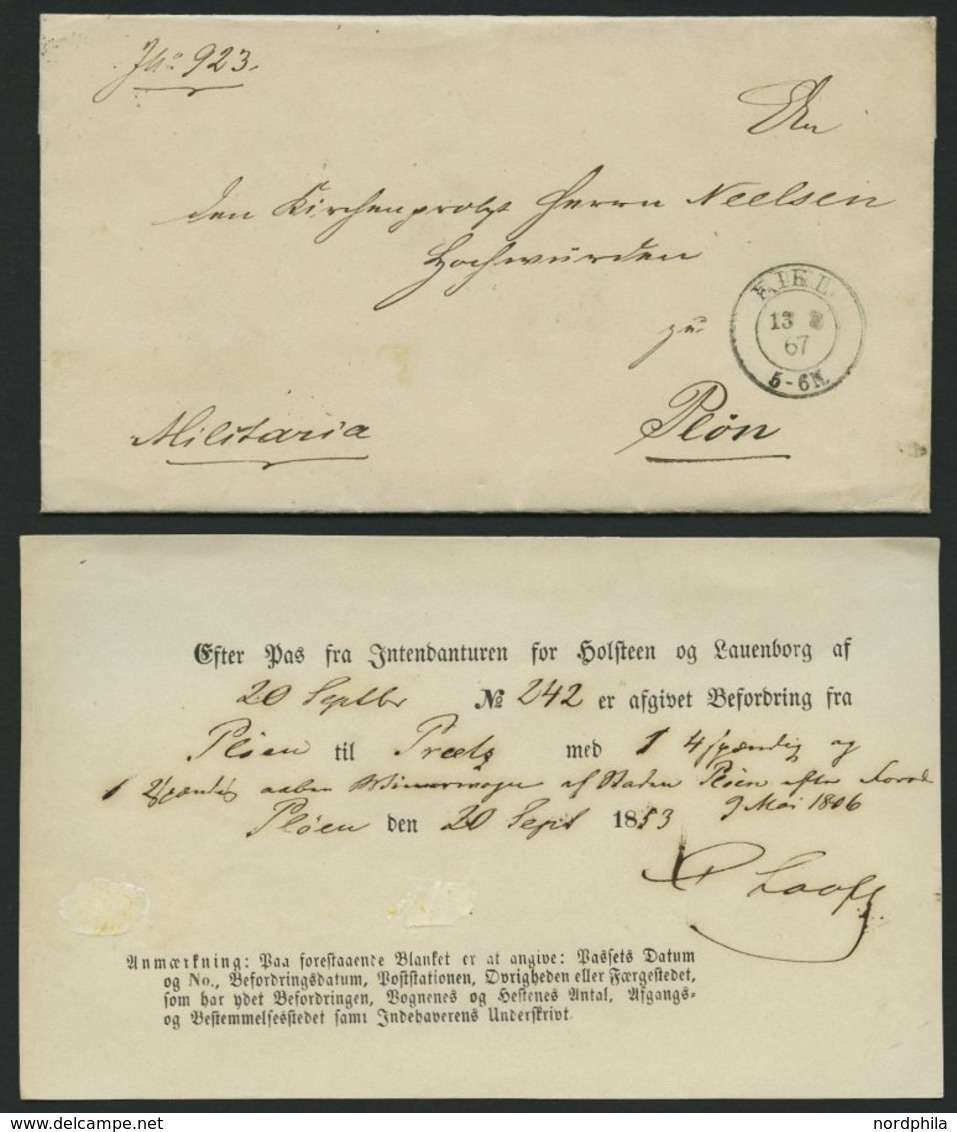 No 923.
An
den Kirchenprobst Herrn Neelsen
Hochwürden
zu
KIEL
13 2
67
5-6N.
Militaria
Plön
Efter Pas fra Intendanturen for Holsteen og Lauenborg af
20 Septbr № 242 er afgivet Befordring fra
Pløen til Preetz med 1 4spændig og
1 2spændig aaben af Staden Pløen efter
9 Mai 1806
Pløen den 20 Sept 1853
Anmærkning: Paa forestaaende Blanket er at angive: Passets Datum
og No., Befordringsdatum, Poststationen, Øvrigheden eller Færgestedet,
som har ydet Befordringen, Vognenes og Hestenes Antal, Afgangs-
og Bestemmelsesstedet samt Indehaverens Underskrivt.
www.delcampe.net
nordphila